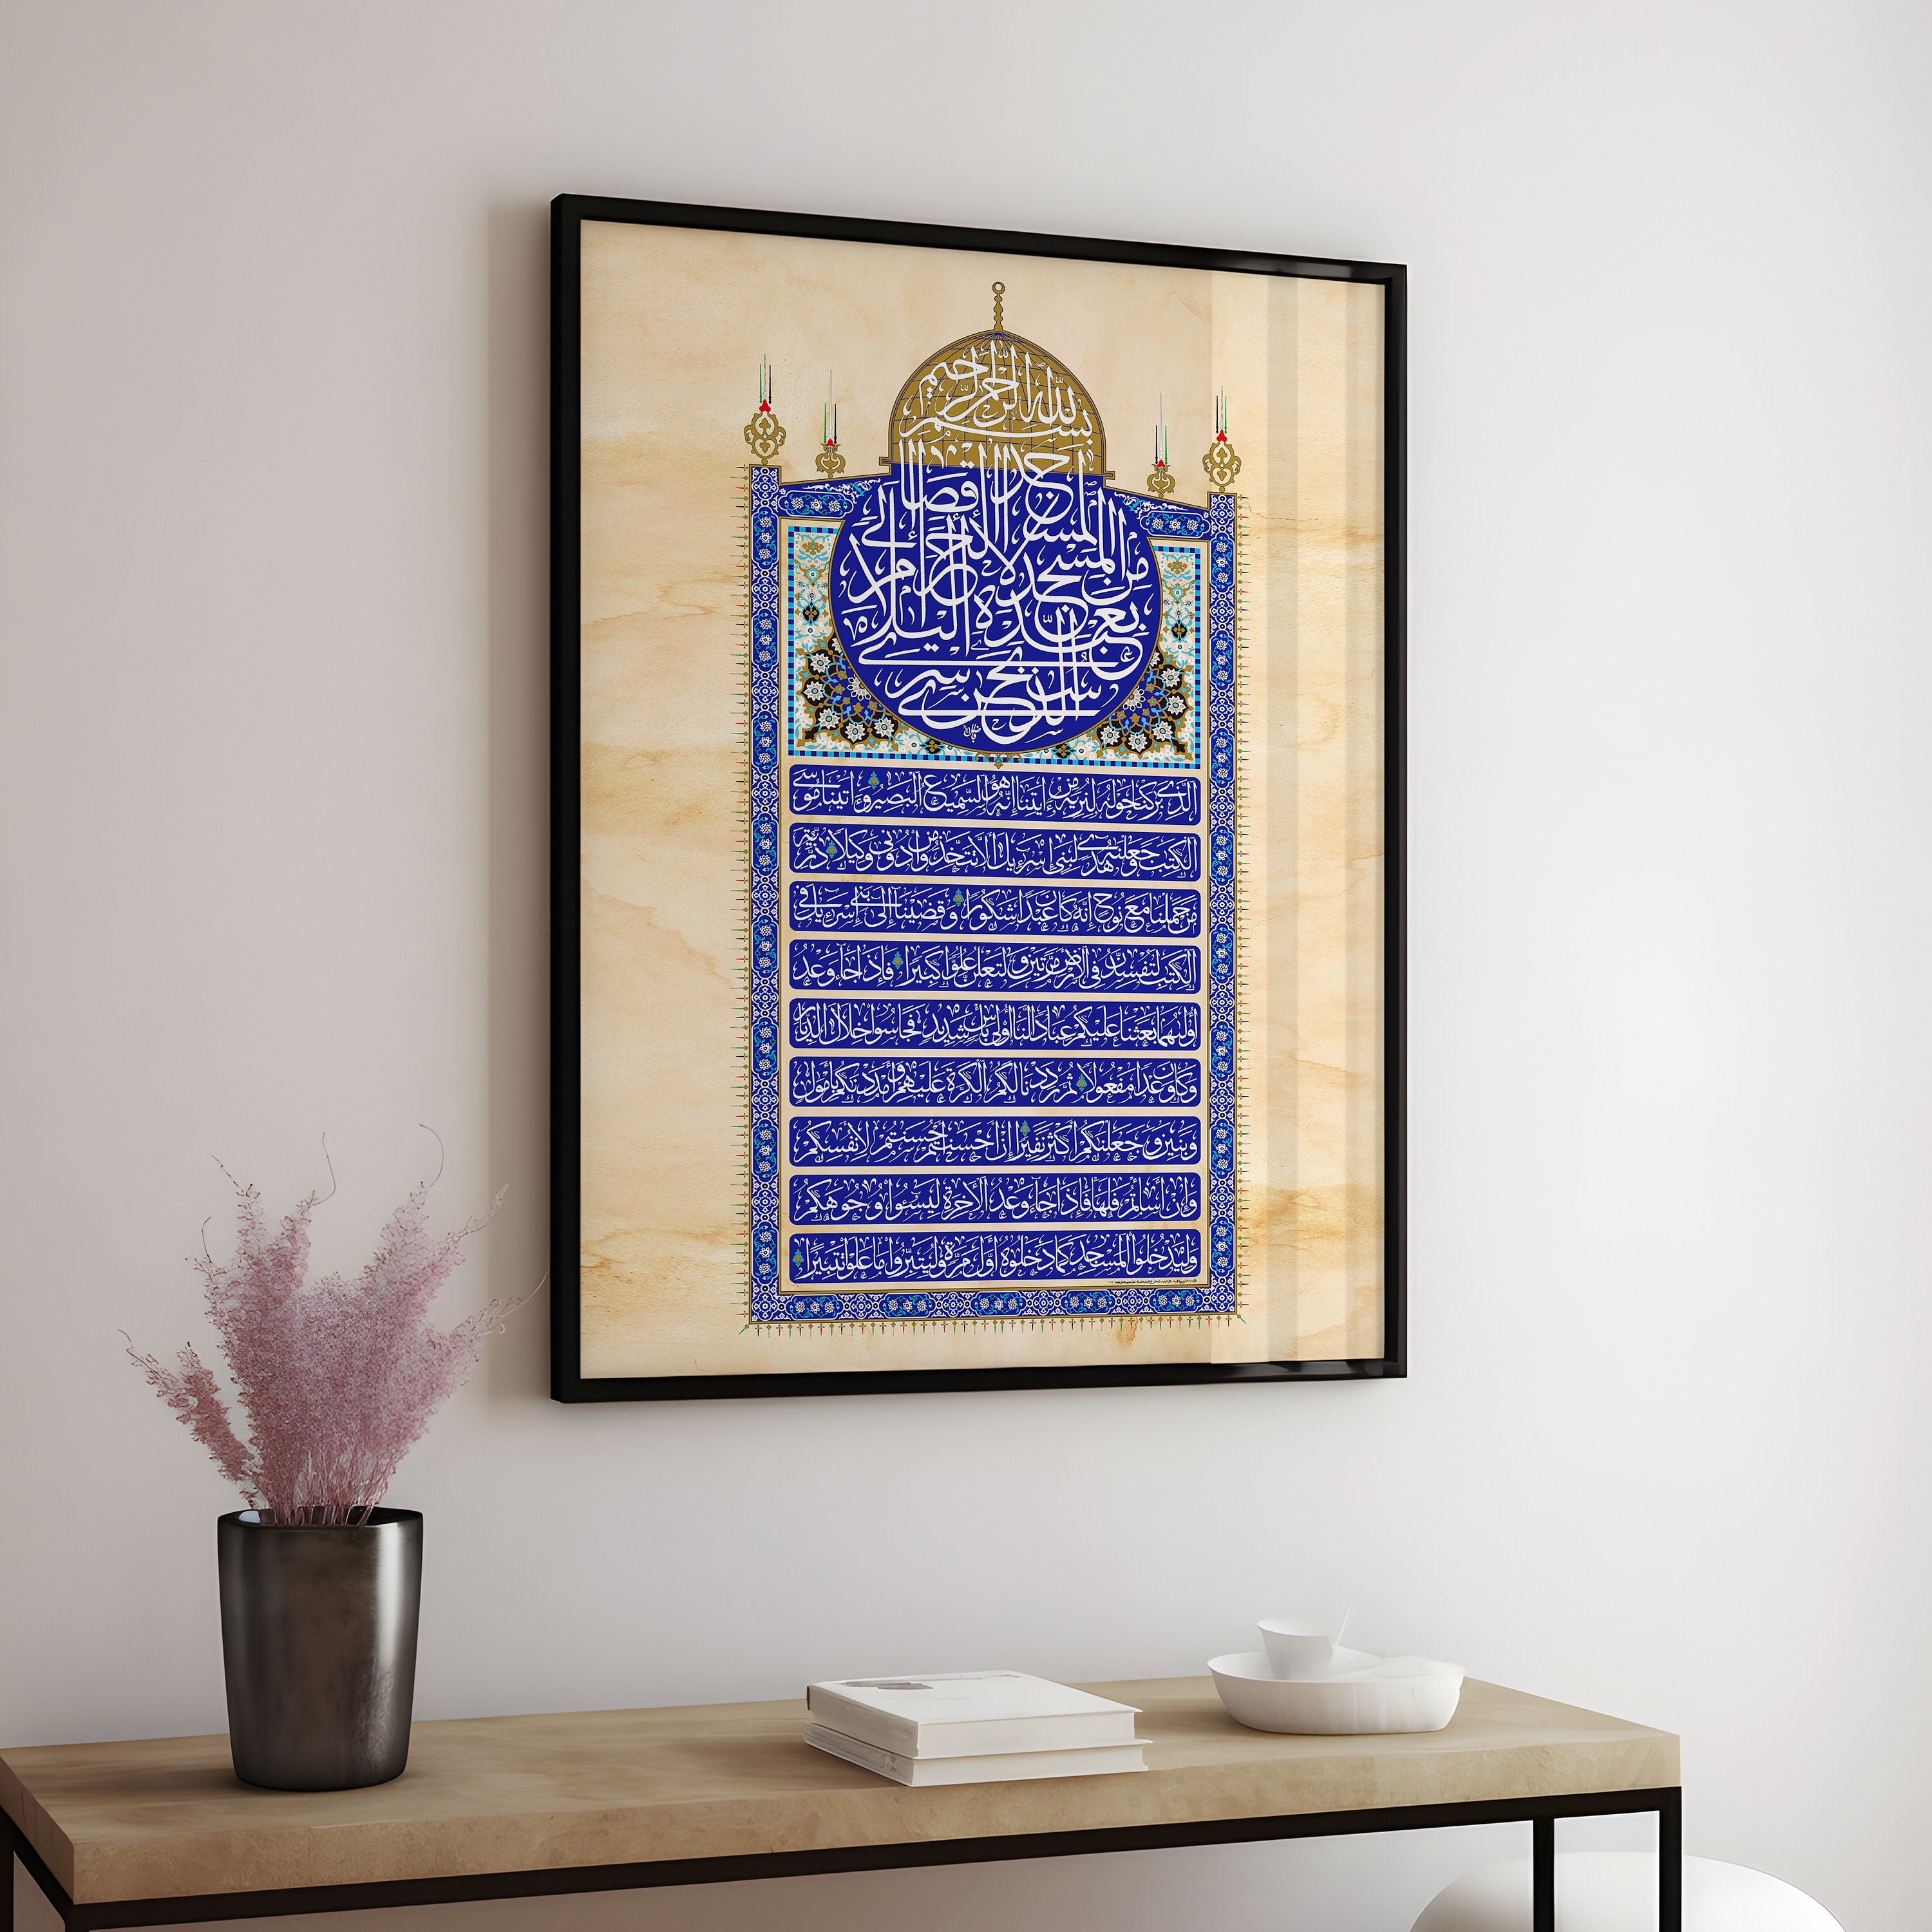 بِسْمِ اللَّهِ الرَّحْمَٰنِ الرَّحِيمِ
سُبْحَٰنَ الَّذِي أَسْرَىٰ بِعَبْدِهِ لَيْلًا مِّنَ الْمَسْجِدِ الْحَرَامِ إِلَى الْمَسْجِدِ الْأَقْصَا
الَّذِي بَٰرَكْنَا حَوْلَهُ لِنُرِيَهُ مِنْ ءَايَٰتِنَا إِنَّهُ هُوَ السَّمِيعُ الْبَصِيرُ وَءَاتَيْنَا مُوسَى
الْكِتَٰبَ وَجَعَلْنَٰهُ هُدًى لِّبَنِي إِسْرَٰءِيلَ أَلَّا تَتَّخِذُوا مِن دُونِي وَكِيلًا ذُرِّيَّةَ
مَنْ حَمَلْنَا مَعَ نُوحٍ إِنَّهُ كَانَ عَبْدًا شَكُورًا وَقَضَيْنَا إِلَىٰ بَنِي إِسْرَٰءِيلَ فِي
الْكِتَٰبِ لَتُفْسِدُنَّ فِي الْأَرْضِ مَرَّتَيْنِ وَلَتَعْلُنَّ عُلُوًّا كَبِيرًا فَإِذَا جَاءَ وَعْدُ
أُولَىٰهُمَا بَعَثْنَا عَلَيْكُمْ عِبَادًا لَّنَا أُولِي بَأْسٍ شَدِيدٍ فَجَاسُوا خِلَالَ الدِّيَارِ
وَكَانَ وَعْدًا مَّفْعُولًا ثُمَّ رَدَدْنَا لَكُمُ الْكَرَّةَ عَلَيْهِمْ وَأَمْدَدْنَٰكُم بِأَمْوَٰلٍ
وَبَنِينَ وَجَعَلْنَٰكُمْ أَكْثَرَ نَفِيرًا إِنْ أَحْسَنتُمْ أَحْسَنتُمْ لِأَنفُسِكُمْ
وَإِنْ أَسَأْتُمْ فَلَهَا فَإِذَا جَاءَ وَعْدُ الْأَخِرَةِ لِيَسُئُوا وُجُوهَكُمْ
وَلِيَدْخُلُوا الْمَسْجِدَ كَمَا دَخَلُوهُ أَوَّلَ مَرَّةٍ وَلِيُتَبِّرُوا مَا عَلَوْا تَتْبِيرًا